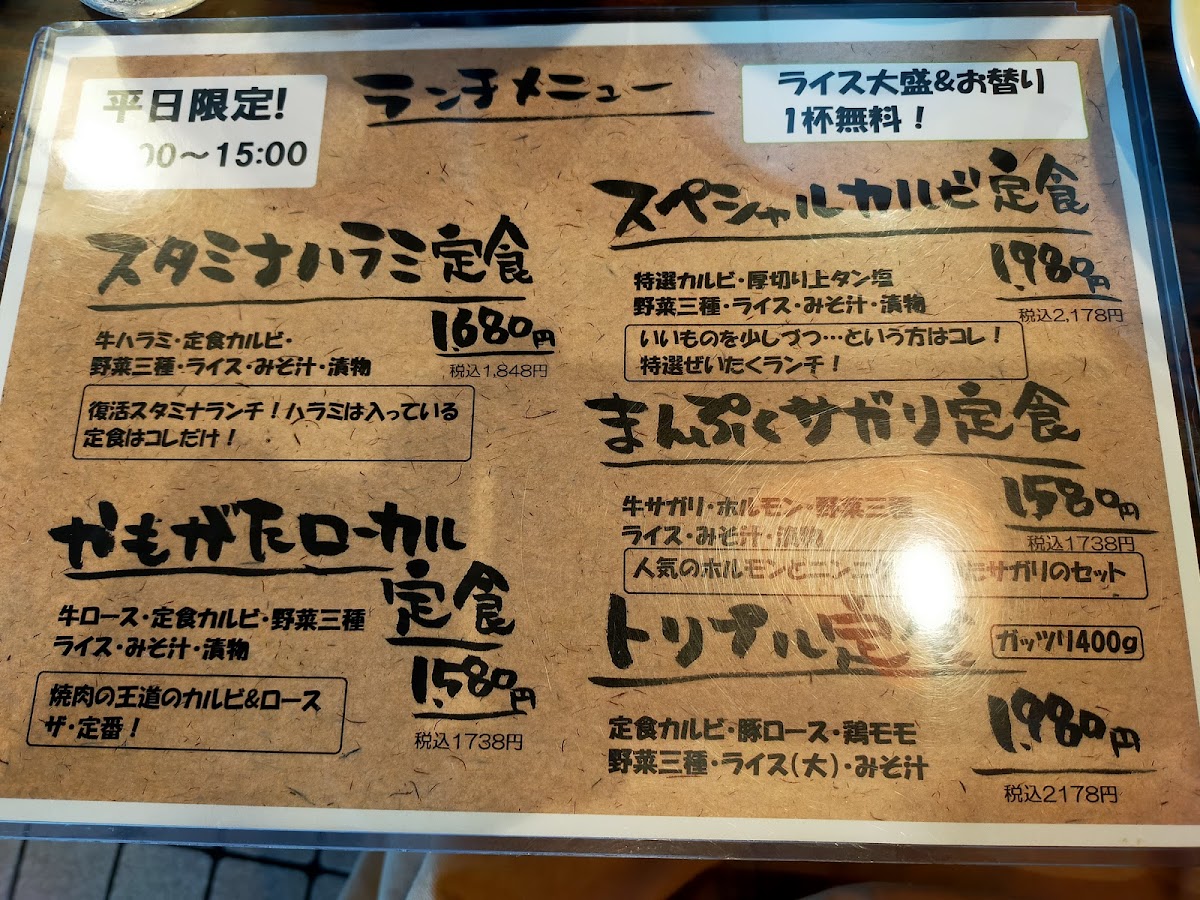 平日限定!
00～15:00
ランチメニュー
ライス大盛&お替り
1杯無料！
スタミナハラミ定食
1,680円
税込1,848円
牛ハラミ・定食カルビ・
野菜三種・ライス・みそ汁・漬物
復活スタミナランチ！ハラミは入っている
定食はコレだけ！
やもがたローカル
定食
牛ロース・定食カルビ・野菜三種
ライス・みそ汁・漬物
1,580円
税込1738円
焼肉の王道のカルビ&ロース
ザ・定番！
スペシャルカルビ定食
1,980円
税込2,178円
特選カルビ・厚切り上タン塩
野菜三種・ライス・みそ汁・漬物
いいものを少しづつ…という方はコレ！
特選ぜいたくランチ！
まんぷくサガリ定食
1,580円
税込1738円
牛サガリ・ホルモン・野菜三種
ライス・みそ汁・漬物
人気のホルモンとニンニ サガリのセット
トリプル定食
ガッツリ400g
1,980円
税込2178円
定食カルビ・豚ロース・鶏モモ
野菜三種・ライス(大)・みそ汁